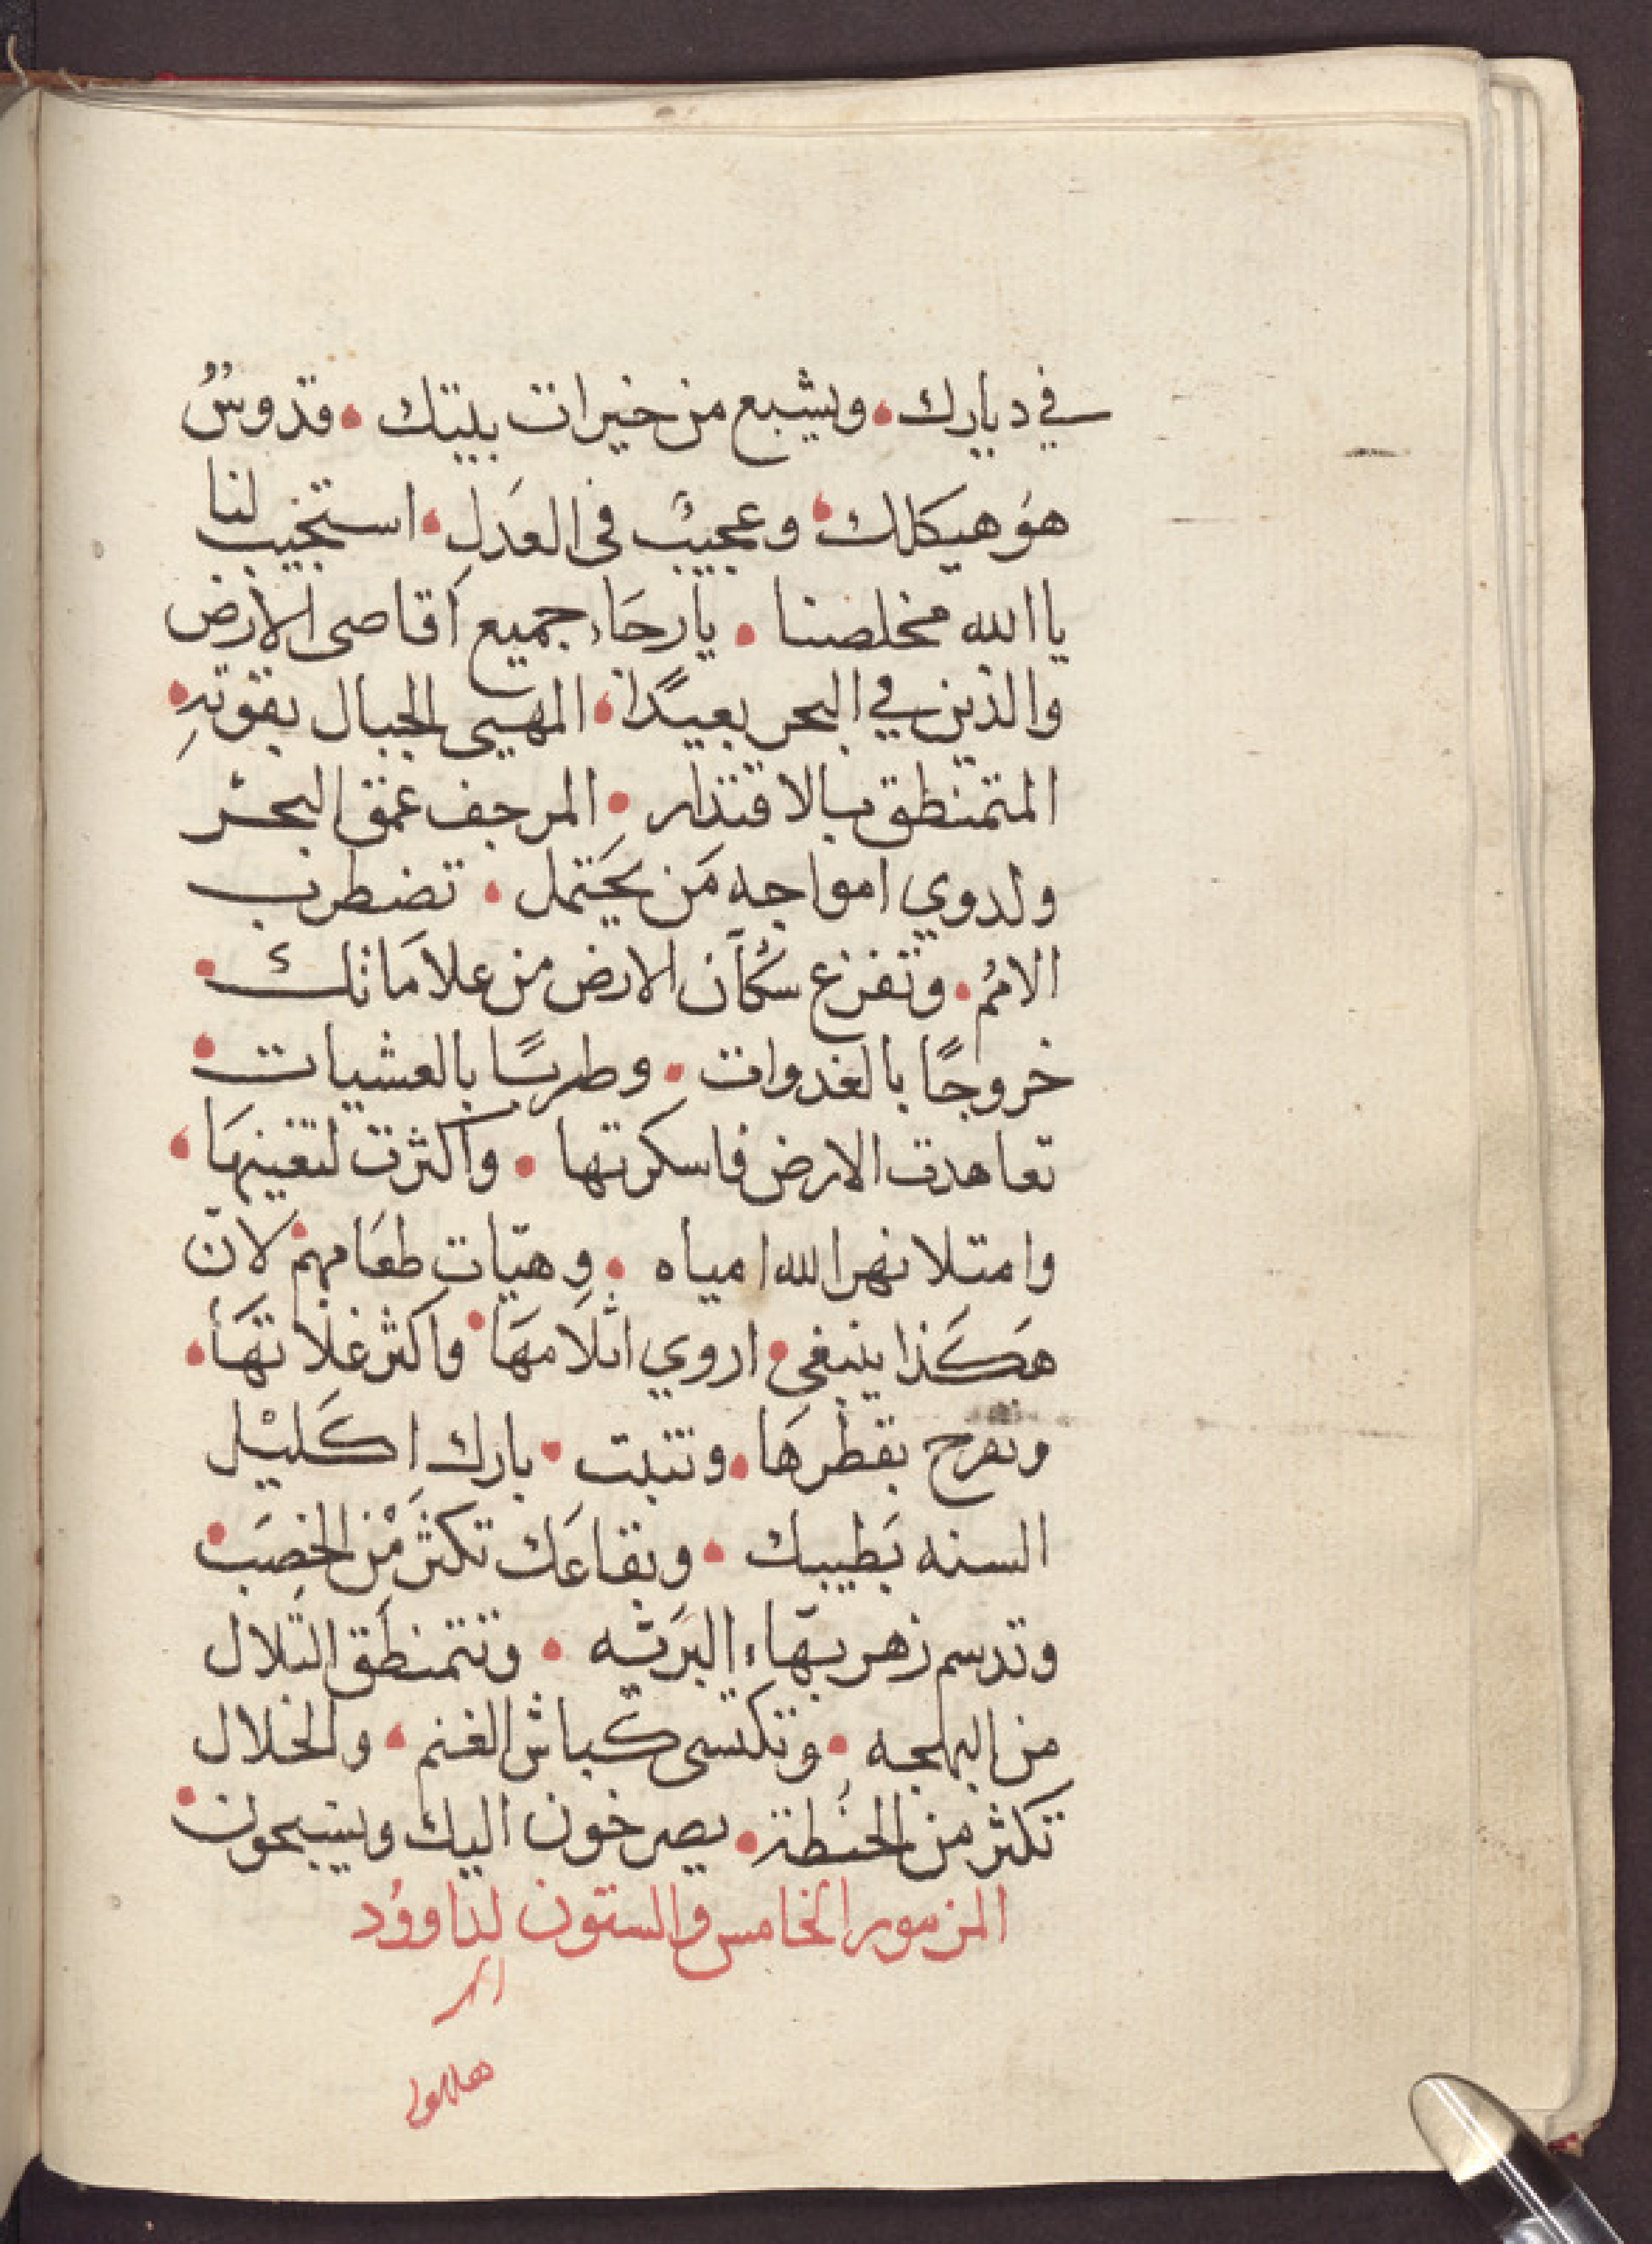 في ديارك • ويشبع من خيرات بيتك • قدوسٌ
هو هيكلك • وعجيبٌ فى العَدلِ • استجيب لنا
يا الله مخلصنا • يا رجَاء جميع اَقاصى الارض
والذين في البحر بعيدًا • المهيى الجبال بقوتهِ •
المتمنطق بالاقتدار • المرجف عمق البحر
ولدوي امواجه مَن يحَتمل • تضطرب
الاممُ • وتفزع سكُاَن الارض من علامَاتك •
خروجًا بالغدوات • وطربًا بالعشيات •
تعاهدت الارض فاسكرتها • واكثرت لتغنيهَا •
وامتلا نهر الله امياه • وهيّات طعَامهم • لانّ
هَكَذا ينبغي • اروي اثلامهَا • واكثر غلاتهَا •
وتفرح بقطْرهَا • وتنبت • بارك اكليْل
السنه بَطيبك • وبقاعَك تكثر مْن الخصَب •
وتدسم زهر بهَاء البرَيه • وتتمنطَق التلال
من البهجه • وتكتسى كباش الغنم • والخلال
تكثر من الحنُطة • يصرخون اليك ويسبحون •
المزمور الخامس والستون لداوود
هللويا